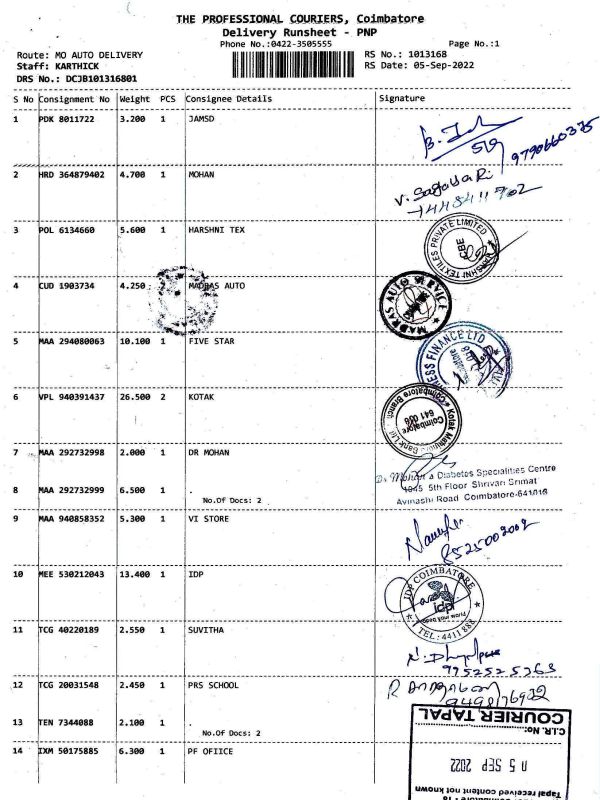 THE PROFESSIONAL COURIERS, Coimbatore
Delivery Runsheet - PNP
Phone No.:0422-3505555
Page No.:1
Route: MO AUTO DELIVERY
RS No.: 1013168
Staff: KARTHICK
RS Date: 05-Sep-2022
DRS No.: DCJB101316801
S No Consignment No Weight PCS Consignee Details Signature
1 PDK 8011722 3.200 1 JAMSD
519 9790660375
2 HRD 364879402 4.700 1 MOHAN
3 POL 6134660 5.600 1 HARSHNI TEX
HARSHNI TEXTILES PRIVATE LIMITED
CBE
4 CUD 1903734 4.250 MADRAS AUTO
MADRAS AUTO SERVICE
5 MAA 294080063 10.100 1 FIVE STAR
FINANCE LTD
6 VPL 940391437 26.500 2 KOTAK
Kotak Mahindra Bank Ltd
Coimbatore Branch
Coimbatore
7 MAA 292732998 2.000 1 DR MOHAN
Dr Mohan's Diabetes Specialities Centre
5th Floor Shrivari Srimat
8 MAA 292732999 6.500 1
Avinashi Road Coimbatore-641018
No.Of Docs: 2
9 MAA 940858352 5.300 1 VI STORE
8525002002
10 MEE 530212043 13.400 1 IDP
IDP COIMBATORE
idp
TEL: 4411888
11 TCG 40220189 2.550 1 SUVITHA
9752525363
12 TCG 20031548 2.450 1 PRS SCHOOL
13 TEN 7344088 2.100 1
No.Of Docs: 2
COURIER TAPAL
C.I.R. No:
14 IXM 50175885 6.300 1 PF OFIICE
05 SEP 2022
Tapal received content not known